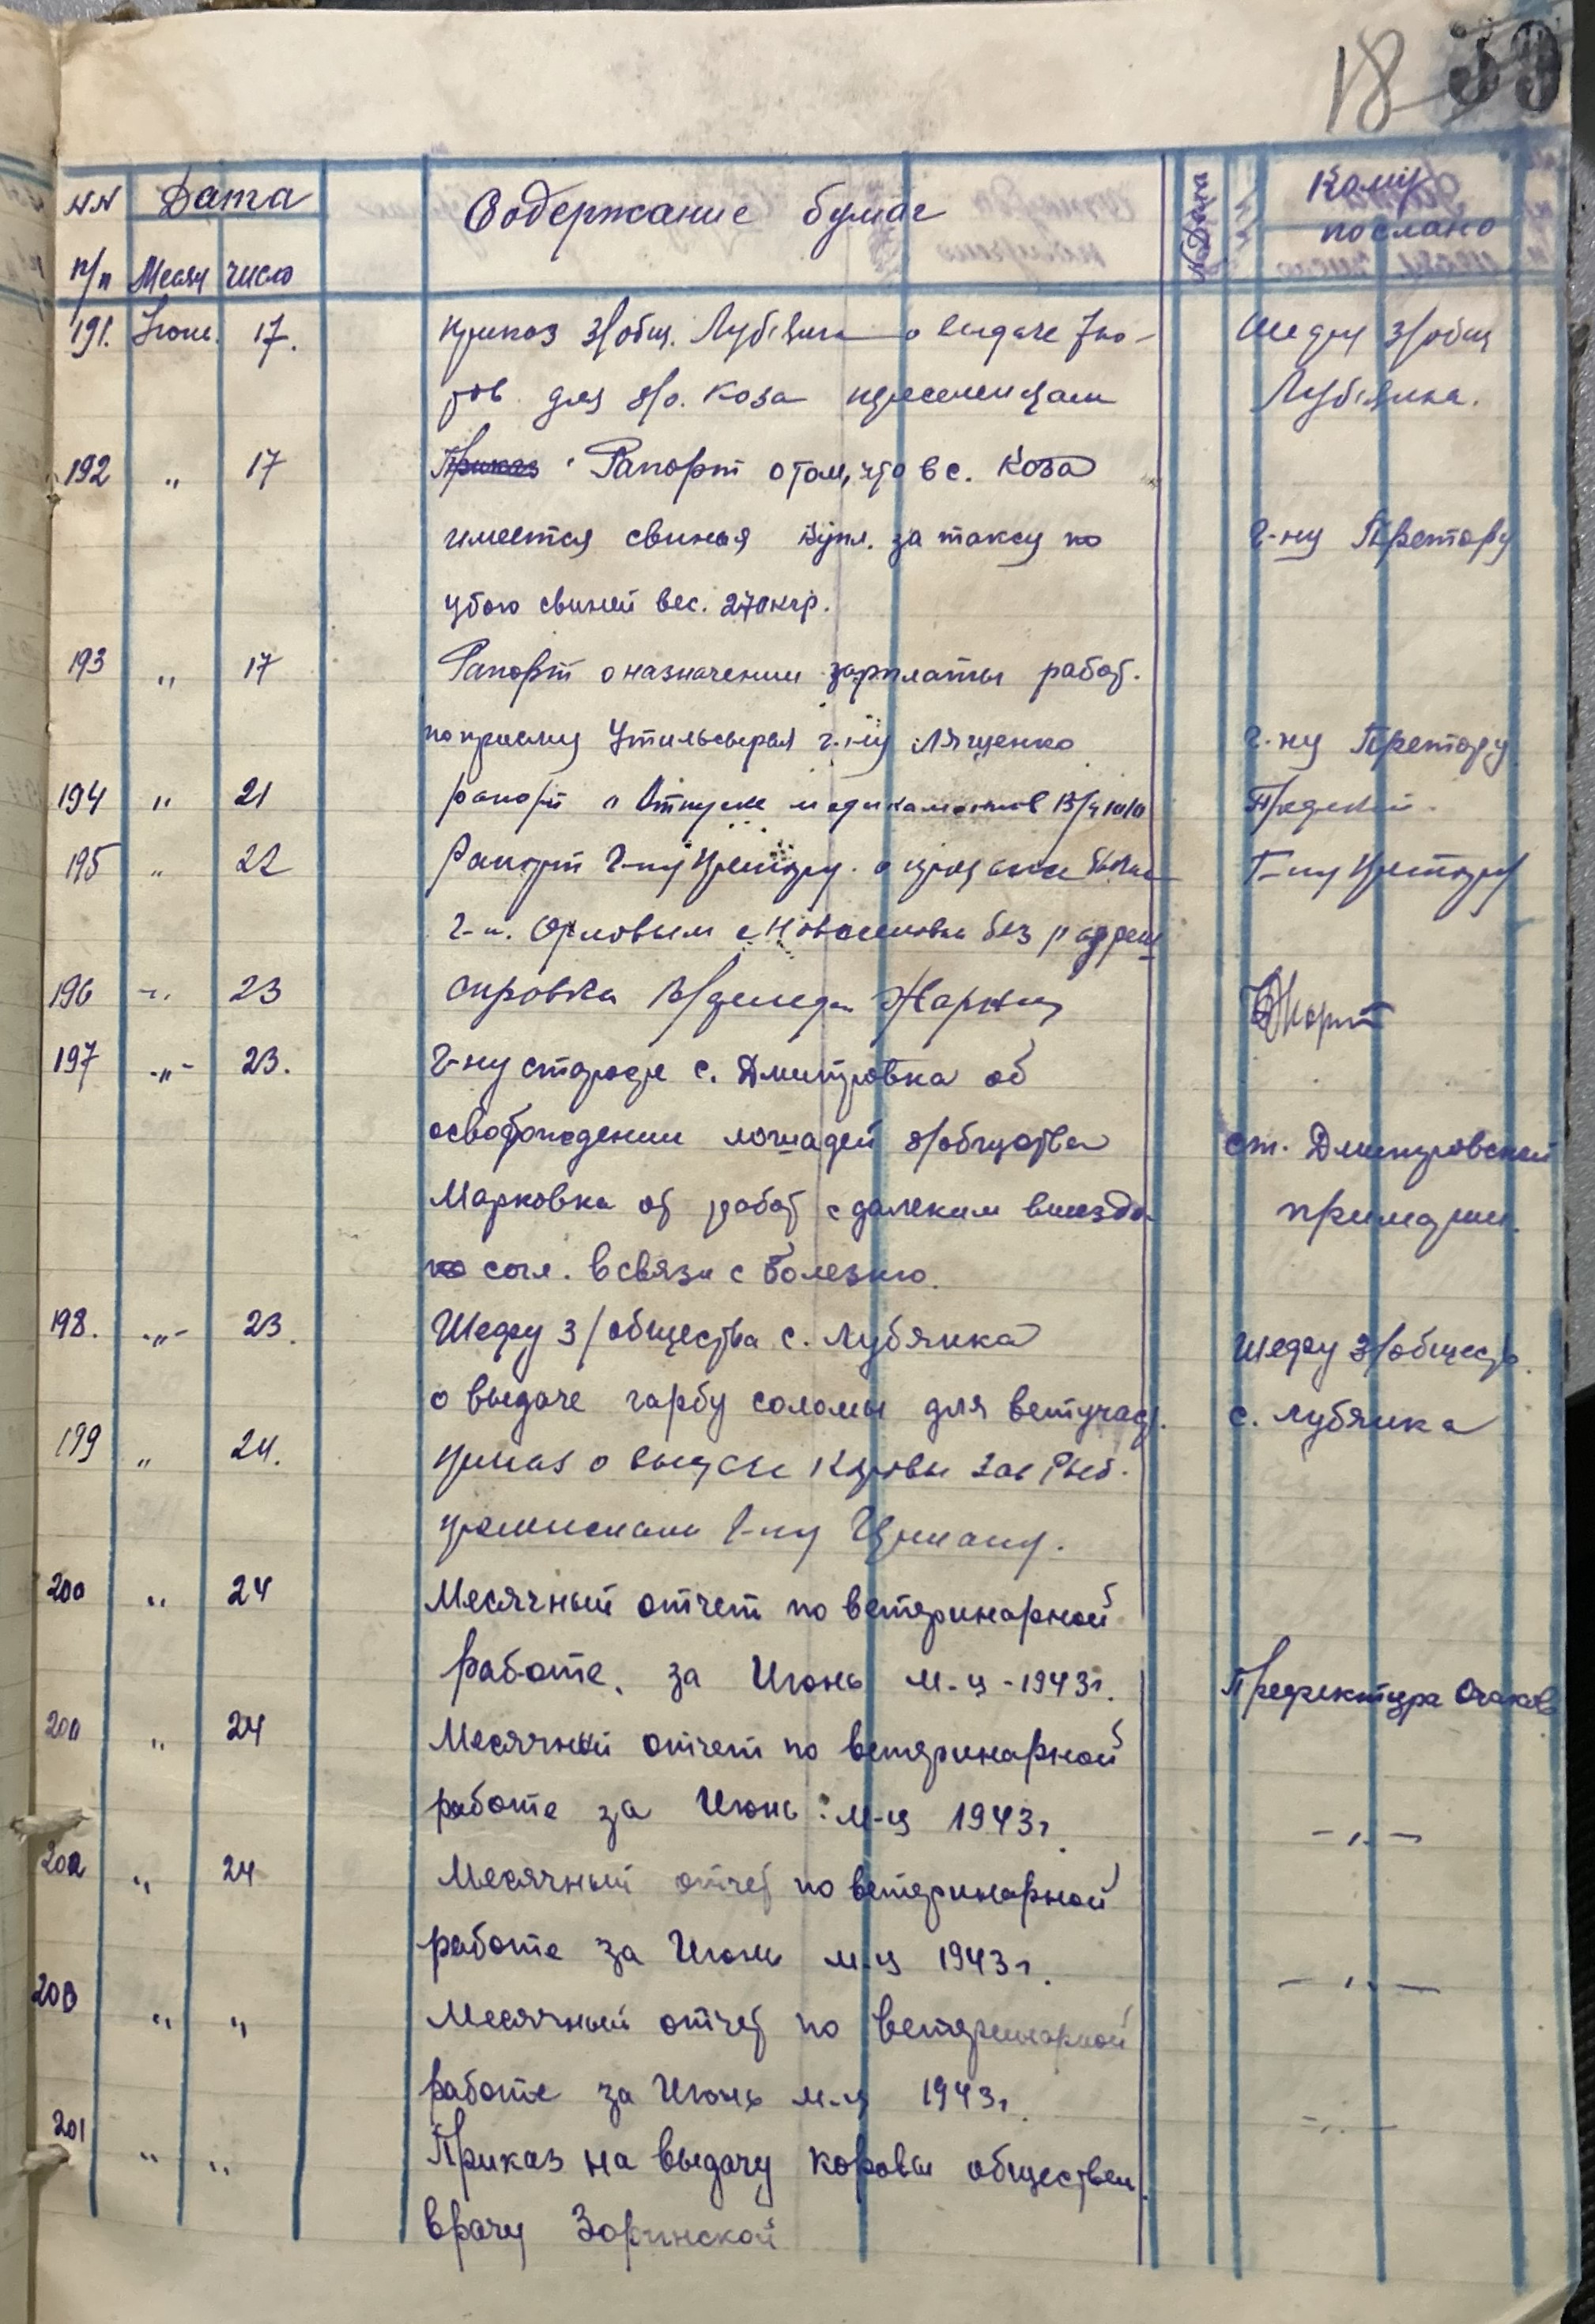 18 39
NN Дата Содержание бумаг № Дата Кому
послано
п/п Месяц число
191. Июнь. 17. приказ з/общ. Лубянка о выдаче Шефу з/общ
для з/о. Коза переселенцам Лубянка.
192 " 17 Приказ Рапорт о том, что в с. Коза
имеется свинья купл. за таксу по г-ну Претору
убою свиней вес. 270 кгр.
193 " 17 Рапорт о назначении зарплаты работ.
по приему Утильсырья г-ну Лященко г-ну Претору
194 " 21 рапорт о Отпуске медикаментов
195 " 22 Рапорт г-ну Претору о продаже Г-ну Претору
г-н. Орловым с без разреш
196 -"- 23 справка
197 -"- 23. г-ну старосте с. Дмитровка об
освобождении лошадей з/общества ст. Дмитровской
Марковка от работ с далеким выездо примарии.
по согл. в связи с болезню.
198. -"- 23. Шефу з/общества с. Лубянка Шефу з/обществ.
о выдаче гарбу соломы для ветучаст. с. Лубянка
199 " 24. приказ о выпуске коровы Зав Рыб.
промыслами г-ну
200 " 24 Месячный отчет по ветеринарной
работе. за Июнь м-ц - 1943г. Префектура Очаков
200 " 24 Месячный отчет по ветеринарной
работе за Июнь м-ц 1943г. -"-
200 " 24 Месячный отчет по ветеринарной
работе за Июнь м-ц 1943г. -"-
200 " " Месячный отчет по ветеринарной
работе за Июнь м-ц 1943г. -"-
201 " " Приказ на выдачу коровы обществен.
врачу Зоринской